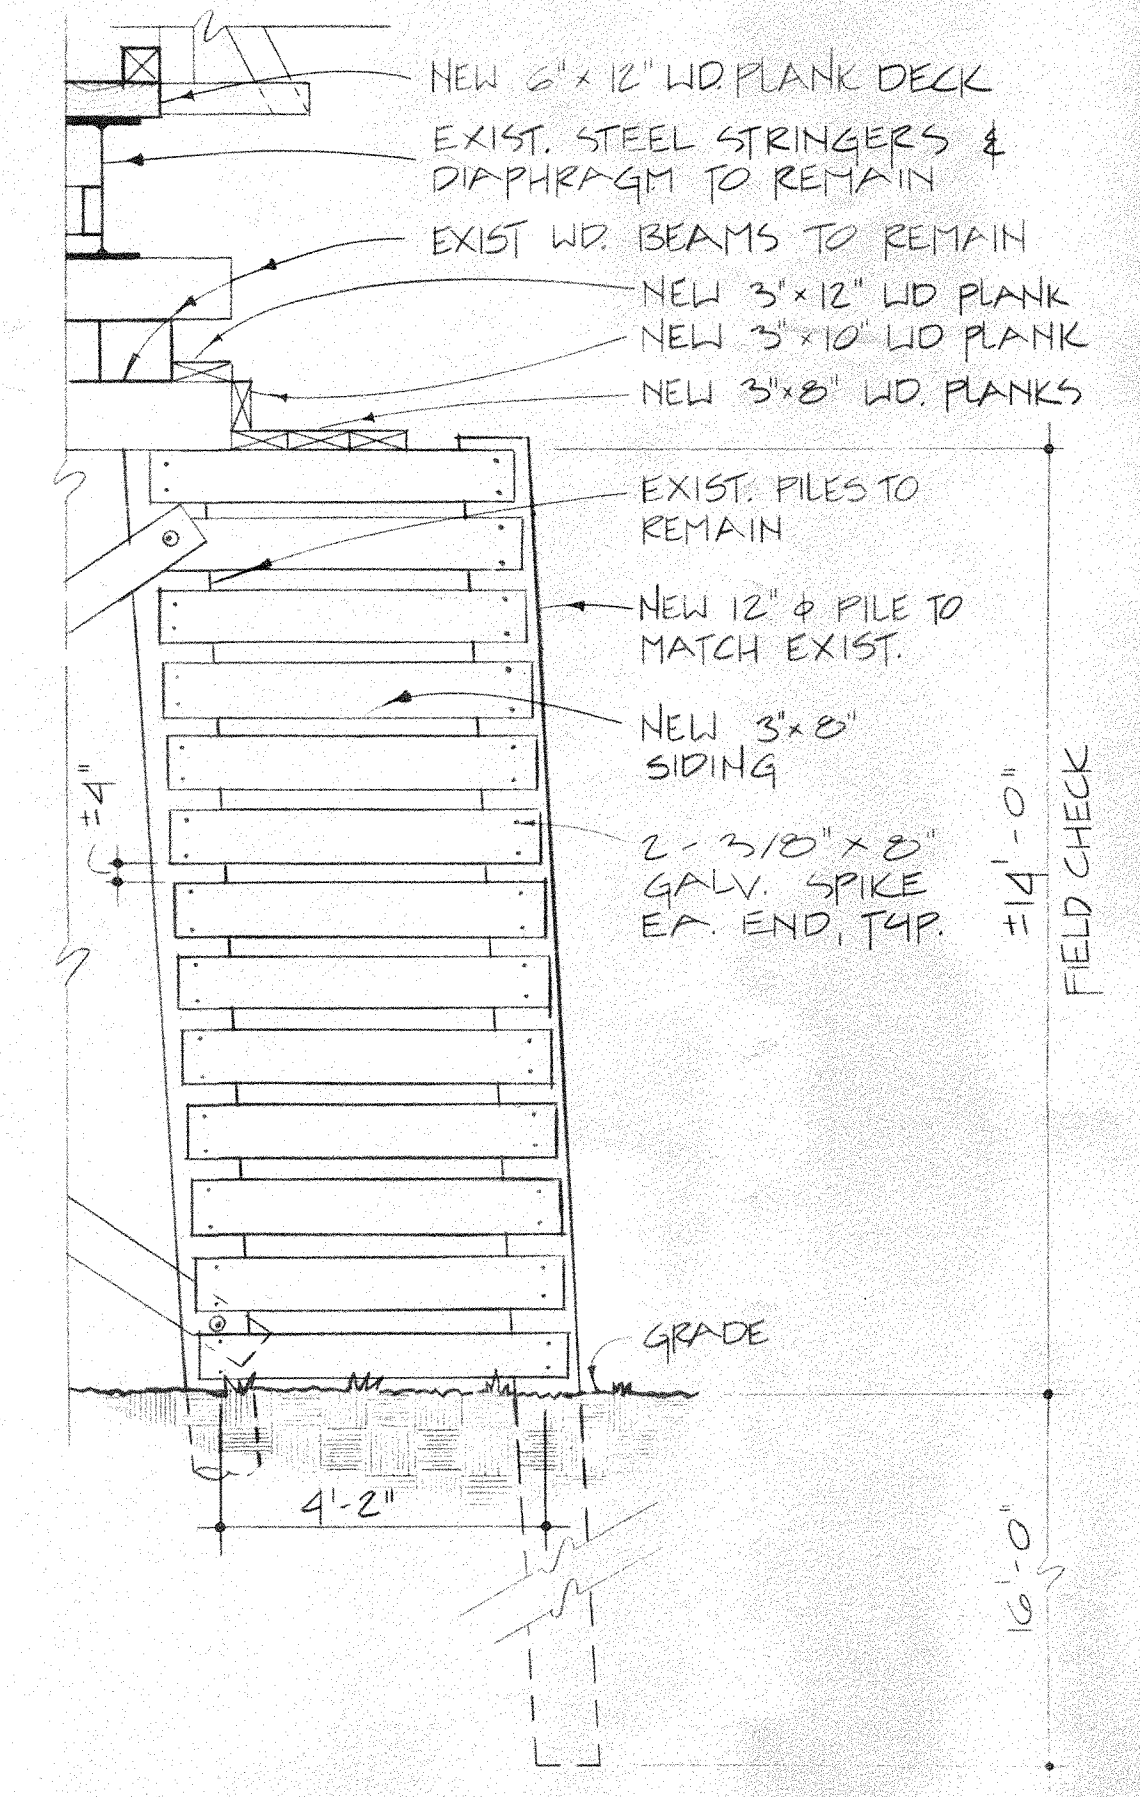 NEW 6" x 12" WD. PLANK DECK
EXIST. STEEL STRINGERS &
DIAPHRAGM TO REMAIN
EXIST WD. BEAMS TO REMAIN
NEW 3" x 12" WD PLANK
NEW 3" x 10" WD PLANK
NEW 3" x 8" WD. PLANKS
EXIST. PILES TO
REMAIN
NEW 12" ϕ PILE TO
MATCH EXIST.
NEW 3" x 8"
SIDING
±4"
2 - 3/8" X 8"
GALV. SPIKE
EA. END, TYP.
±14' - 0"
FIELD CHECK
GRADE
4'-2"
16'-0"